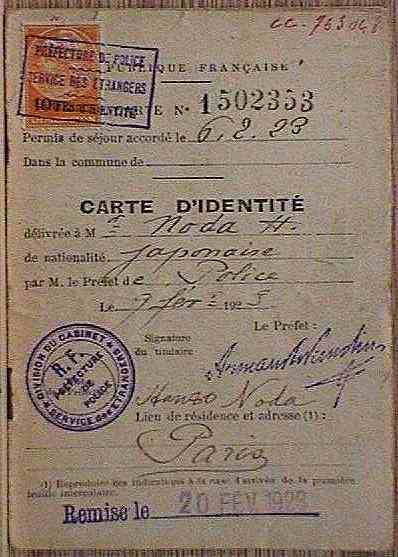 CC. 763
PRÉFECTURE DE POLICE
SERVICE DES ETRANGERS
RÉPUBLIQUE FRANÇAISE
N° 1502353
Permis de séjour accordé le 6.2.23
Dans la commune de
CARTE D'IDENTITÉ
délivrée à M Noda H.
de nationalité japonaise
par M. le Préfet de Police
Le 7 fév 192
Le Préfet :
Signature
du titulaire
Hanzo Noda
DIVISION DU CABINET
R.F.
PRÉFECTURE
DE
POLICE
SERVICE DES ETRANGERS
Lieu de résidence et adresse (1) :
Paris
(1) Reproduire les indications à la case d'arrivée de la première
feuille intercalaire.
Remise le 20 FEV